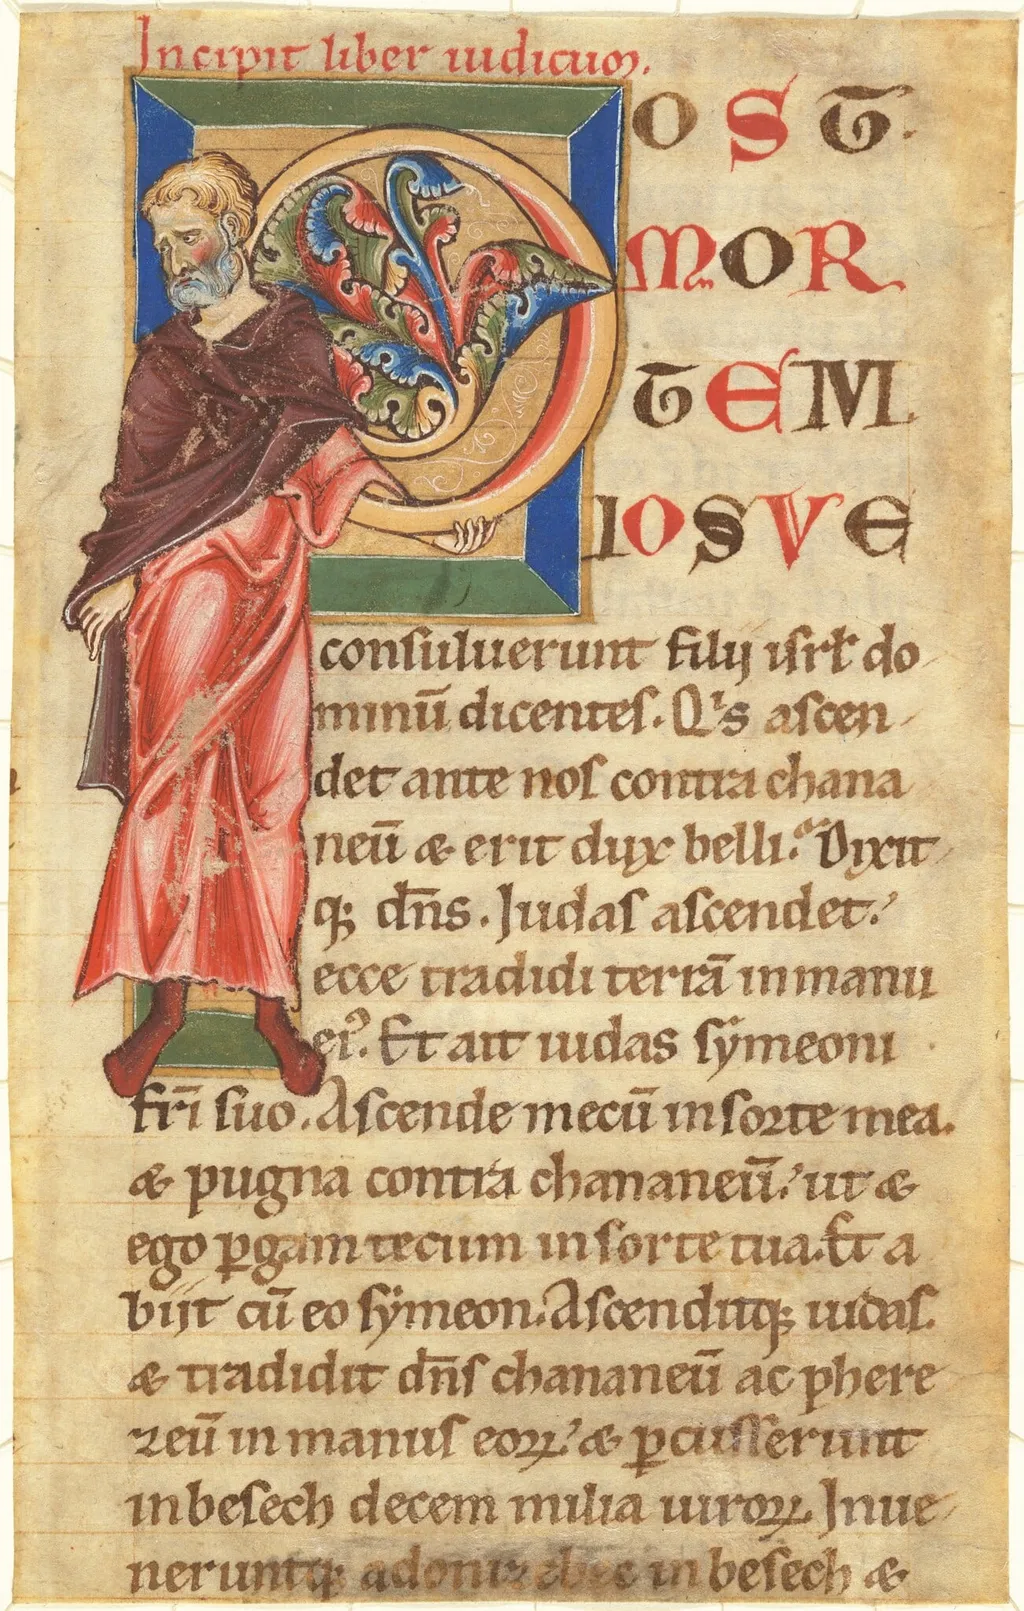 Incipit liber iudicum.
POST
MOR
TEM
IOSVE
consuluerunt filij isrł do
minū dicentes. Qⁱs ascen
det ante nos contra chana
neū & erit dux belli? Dixit
q; dn̄s. Judas ascendet.
ecce tradidi terrā in manu
ei⁹. Et ait iudas symeoni
fri̅ suo. Ascende mecū in sorte mea.
& pugna contra chananeū. ut &
ego ꝑgam tecum in sorte tua. Et a
bijt cū eo symeon. Ascenditq; iudas.
& tradidit dn̄s chananeū ac phere
zeū in manus eoꝝ. & ꝑcusserunt
in besech decem milia uiroꝝ. Inue
neruntq; adonibezec in besech &